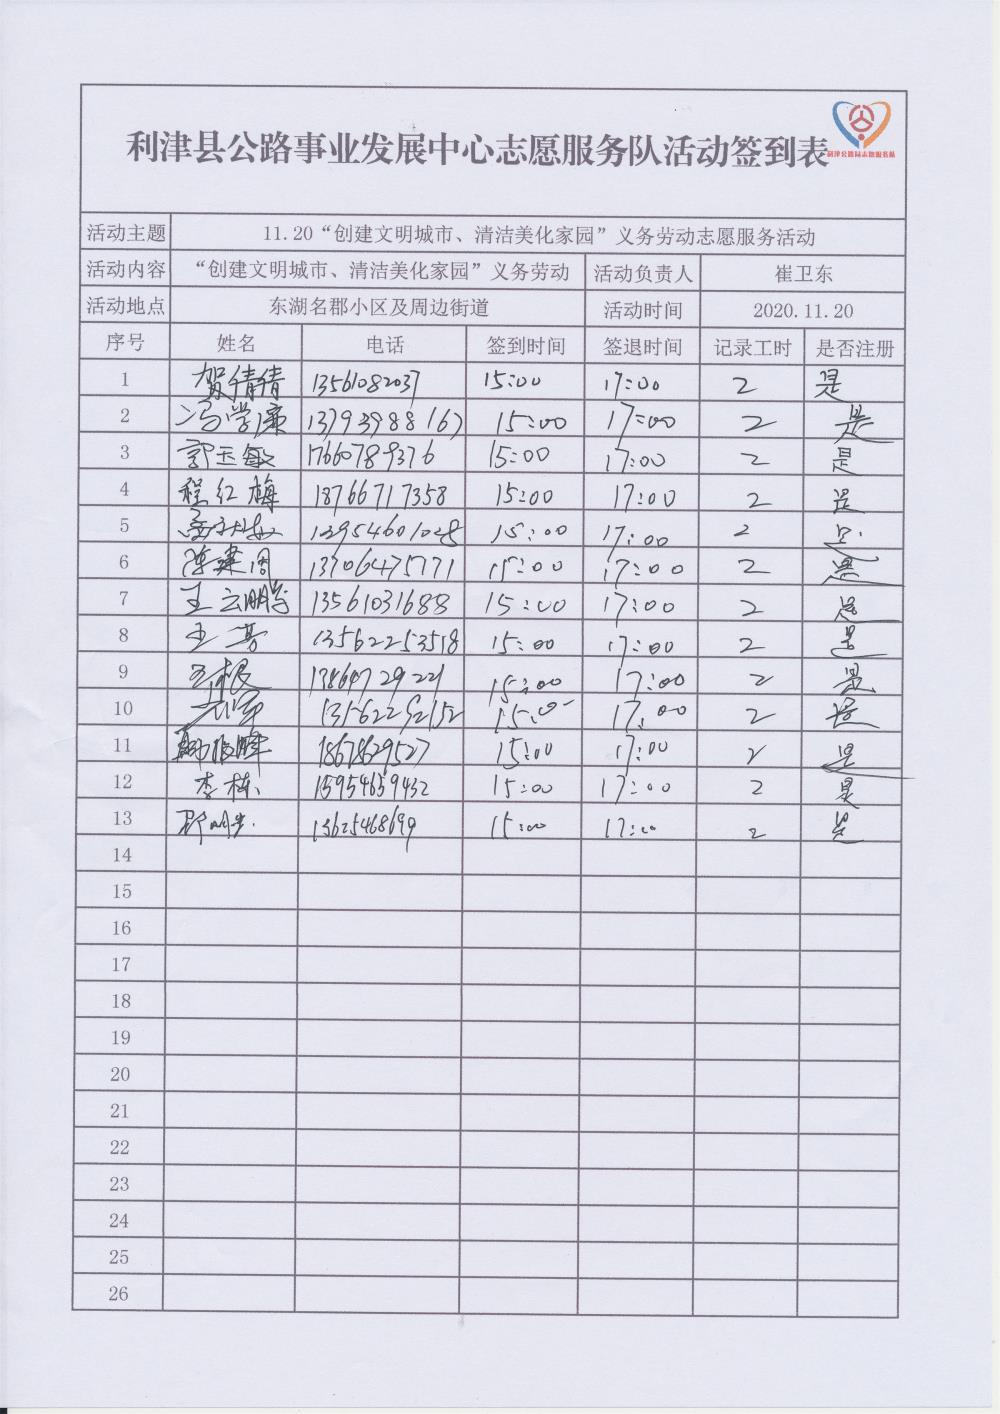 利津县公路事业发展中心志愿服务队活动签到表
利津公路局志愿服务队
活动主题 11.20“创建文明城市、清洁美化家园”义务劳动志愿服务活动
活动内容 “创建文明城市、清洁美化家园”义务劳动 活动负责人 崔卫东
活动地点 东湖名郡小区及周边街道 活动时间 2020.11.20
序号 姓名 电话 签到时间 签退时间 记录工时 是否注册
1 贺倩倩 13561082037 15:00 17:00 2 是
2 冯学廉 13793988167 15:00 17:00 2 是
3 郭玉敏 17660789376 15:00 17:00 2 是
4 程红梅 18766717358 15:00 17:00 2 是
5 15:00 17:00 2 是
6 陈建周 13706475771 15:00 17:00 2 是
7 王云鹏 13561031688 15:00 17:00 2 是
8 王芳 13562253518 15:00 17:00 2 是
9 15:00 17:00 2 是
10 15:00 17:00 2 是
11 18678629527 15:00 17:00 2 是
12 李栋 15954659432 15:00 17:00 2 是
13 13625468699 15:00 17:00 2 是
14
15
16
17
18
19
20
21
22
23
24
25
26